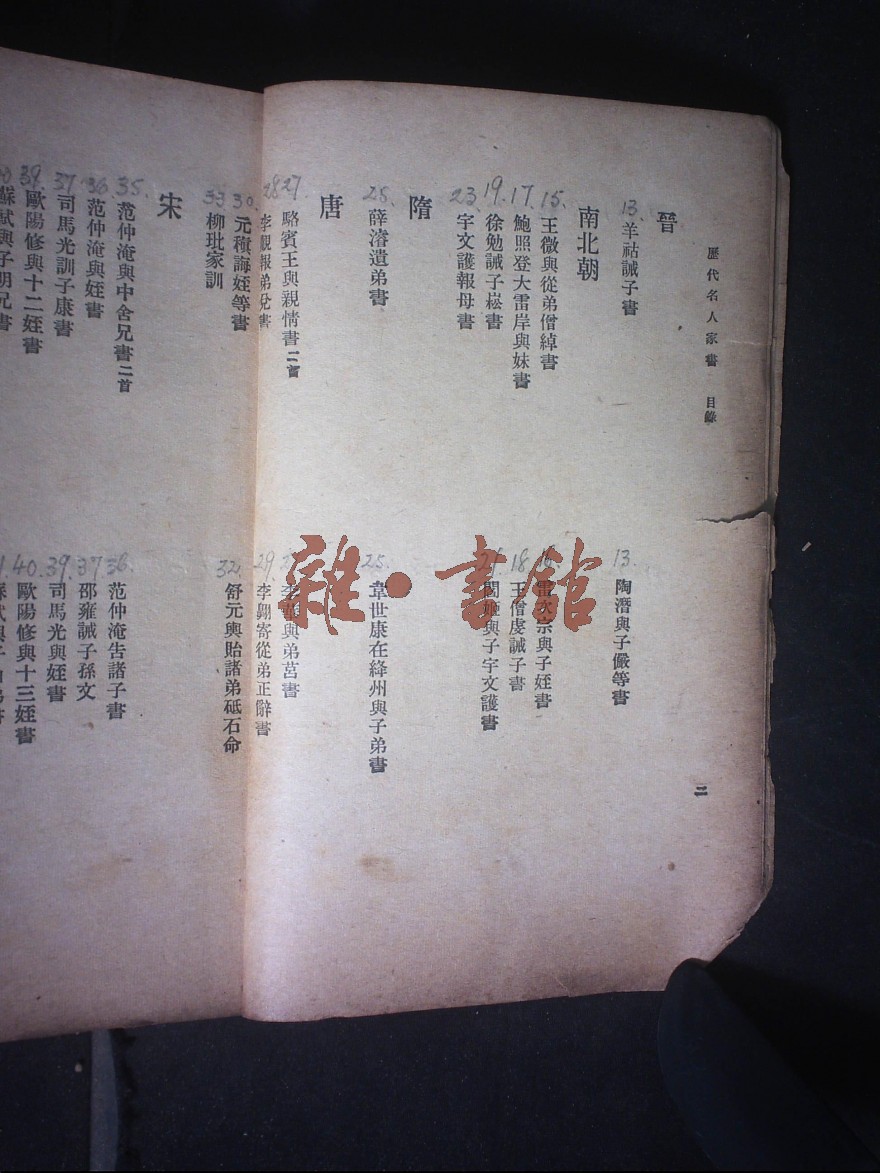 歷代名人家書 目錄
二
晉
13. 羊祜誡子書
13. 陶潛與子儼等書
南北朝
15. 王微與從弟僧綽書
雷次宗與子姪書
17. 鮑照登大雷岸與妹書
18. 王僧虔誡子書
19. 徐勉誡子崧書
閻姬與子宇文護書
23. 宇文護報母書
隋
25. 薛濬遺弟書
25. 韋世康在絳州與子弟書
唐
27. 駱賓王與親情書二首
李華與弟莒書
28 李觀報弟兌書
29. 李翺寄從弟正辭書
30. 元稹誨姪等書
32. 舒元輿貽諸弟砥石命
33 柳玭家訓
宋
35. 范仲淹與中舍兄書二首
36. 范仲淹告諸子書
36 范仲淹與姪書
37. 邵雍誡子孫文
37 司馬光訓子康書
39. 司馬光與姪書
39. 歐陽修與十二姪書
40. 歐陽修與十三姪書
蘇軾與子明兄書
雜·書館